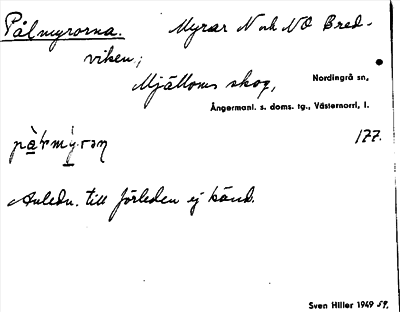 Pålmyrorna. Myrar N och NO Bred-
viken,;
Mjälloms skog, Nordingrå sn,
Ångermanl. s. doms. tg., Västernorrl, l.
177.
Anledn. till förleden ej känd.
Sven Hiller 1949 59.